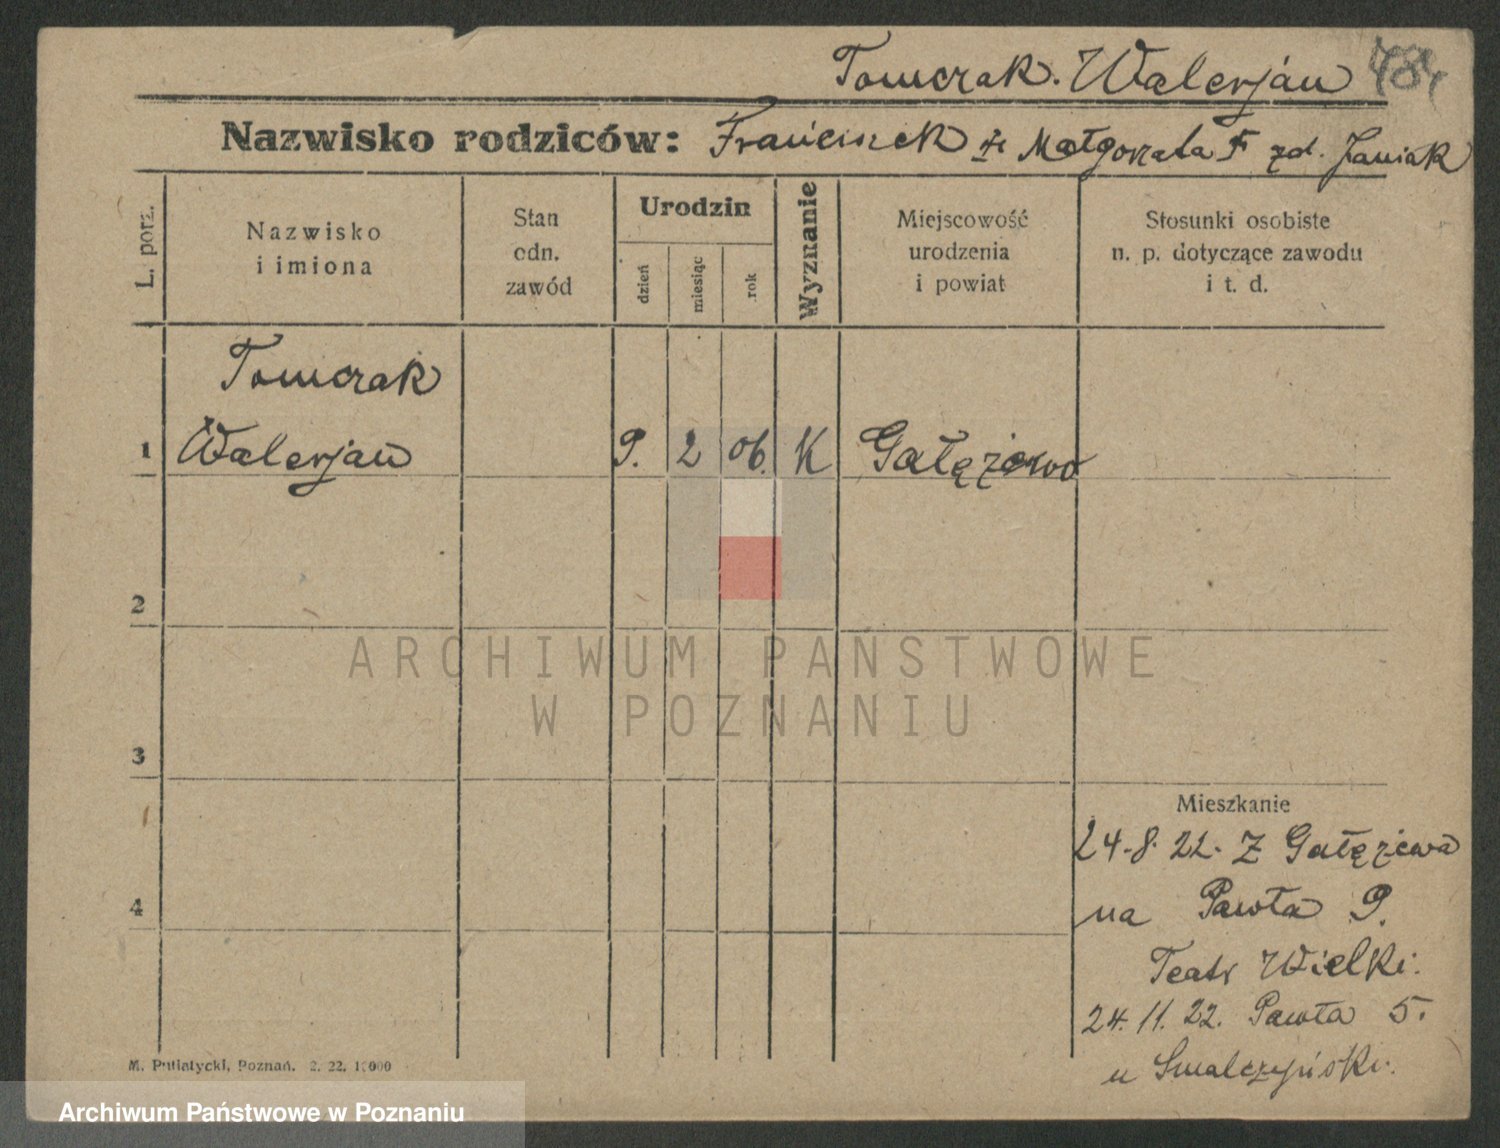 Tomczak. Walerjan 484
Nazwisko rodziców: Franciszek i Małgorzata zd. Janiak
L. porz.
Nazwisko
i imiona
Stan
odn.
zawód
Urodzin
dzień
miesiąc
rok
Wyznanie
Miejscowość
urodzenia
i powiat
Stosunki osobiste
n. p. dotyczące zawodu
i t. d.
Tomczak
1 Walerjan 9. 2 06. K Gałężewo
2
ARCHIWUM PAŃSTWOWE
W POZNANIU
3
Mieszkanie
24.8.22. Z Gałężewa
4
na Pawła 9.
Teatr Wielki.
24.11.22. Pawła 5.
u Smalczyński.
M. Putiatycki, Poznań. 2. 22. 1000
Archiwum Państwowe w Poznaniu